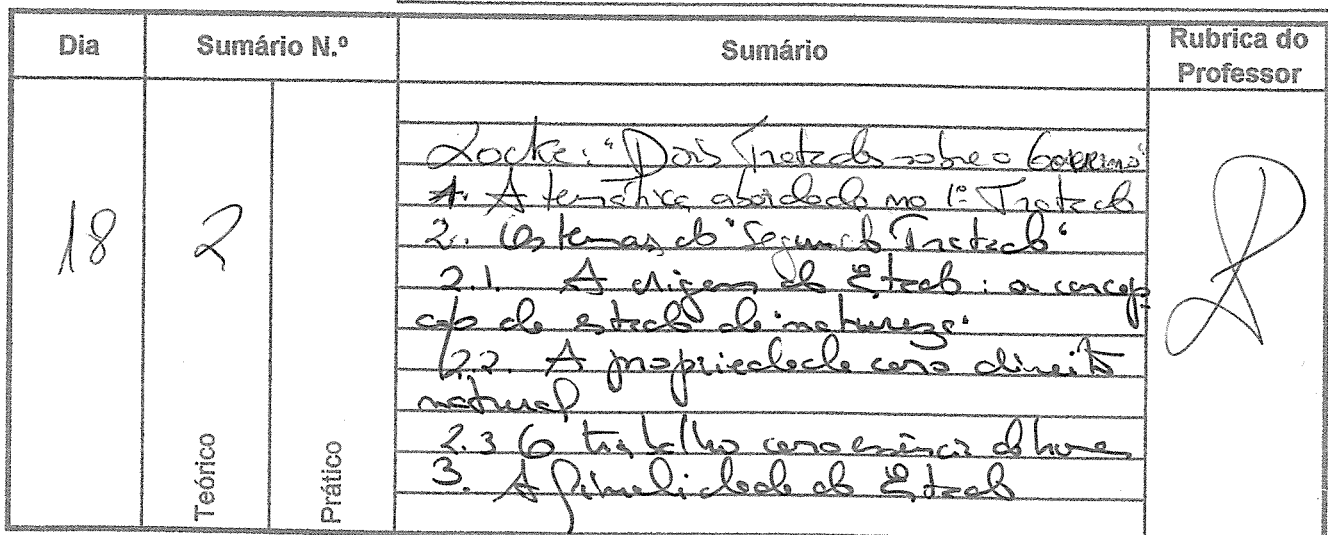 Dia
Sumário N.º
Sumário
Rubrica do
Professor
18
2
Teórico
Prático
Locke: "Dois Tratados sobre o Governo"
1. A temática abordada no 1º Tratado
2. Os temas do "Segundo Tratado"
2.1. A origem do Estado: a concep
ção de estado de natureza.
2.2. A propriedade como direito
natural
2.3 O trabalho como essência do homem
3. A finalidade do Estado